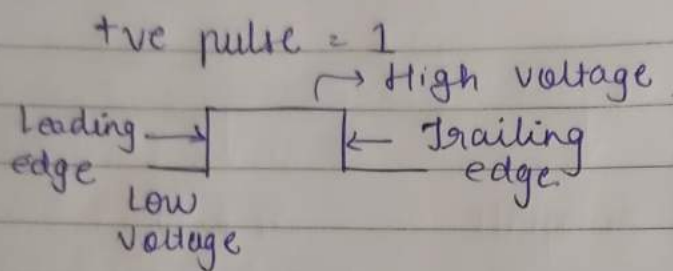 +ve pulse = 1
→ High voltage
Leading → ← Trailing
edge edge
Low
Voltage